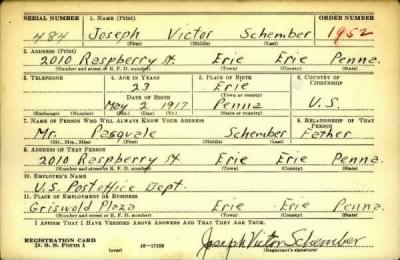 SERIAL NUMBER 1. NAME (Print) ORDER NUMBER
484 Joseph Victor Schember 1952
(First) (Middle) (Last)
2. ADDRESS (Print)
2010 Raspberry St. Erie Erie Penna.
(Number and street or R. F. D. number) (Town) (County) (State)
3. TELEPHONE 4. AGE IN YEARS 5. PLACE OF BIRTH 6. COUNTRY OF CITIZENSHIP
23 Erie
(Town or county)
DATE OF BIRTH
May 2 1917 Penna U.S.
(Exchange) (No.) (Mo.) (Day) (Yr.) (State or country)
7. NAME OF PERSON WHO WILL ALWAYS KNOW YOUR ADDRESS 8. RELATIONSHIP OF THAT PERSON
Mr. Pasquale Schember Father
(Mr., Mrs., Miss) (First) (Middle) (Last)
9. ADDRESS OF THAT PERSON
2010 Raspberry St Erie Erie Penna.
(Number and street or R. F. D. number) (Town) (County) (State)
10. EMPLOYER'S NAME
U.S. Postoffice Dept.
11. PLACE OF EMPLOYMENT OR BUSINESS
Griswold Plaza Erie Erie Penna.
(Number and street or R. F. D. number) (Town) (County) (State)
I AFFIRM THAT I HAVE VERIFIED ABOVE ANSWERS AND THAT THEY ARE TRUE.
REGISTRATION CARD
D. S. S. Form 1 (over) 16—17105 Joseph Victor Schember
(Registrant's signature)